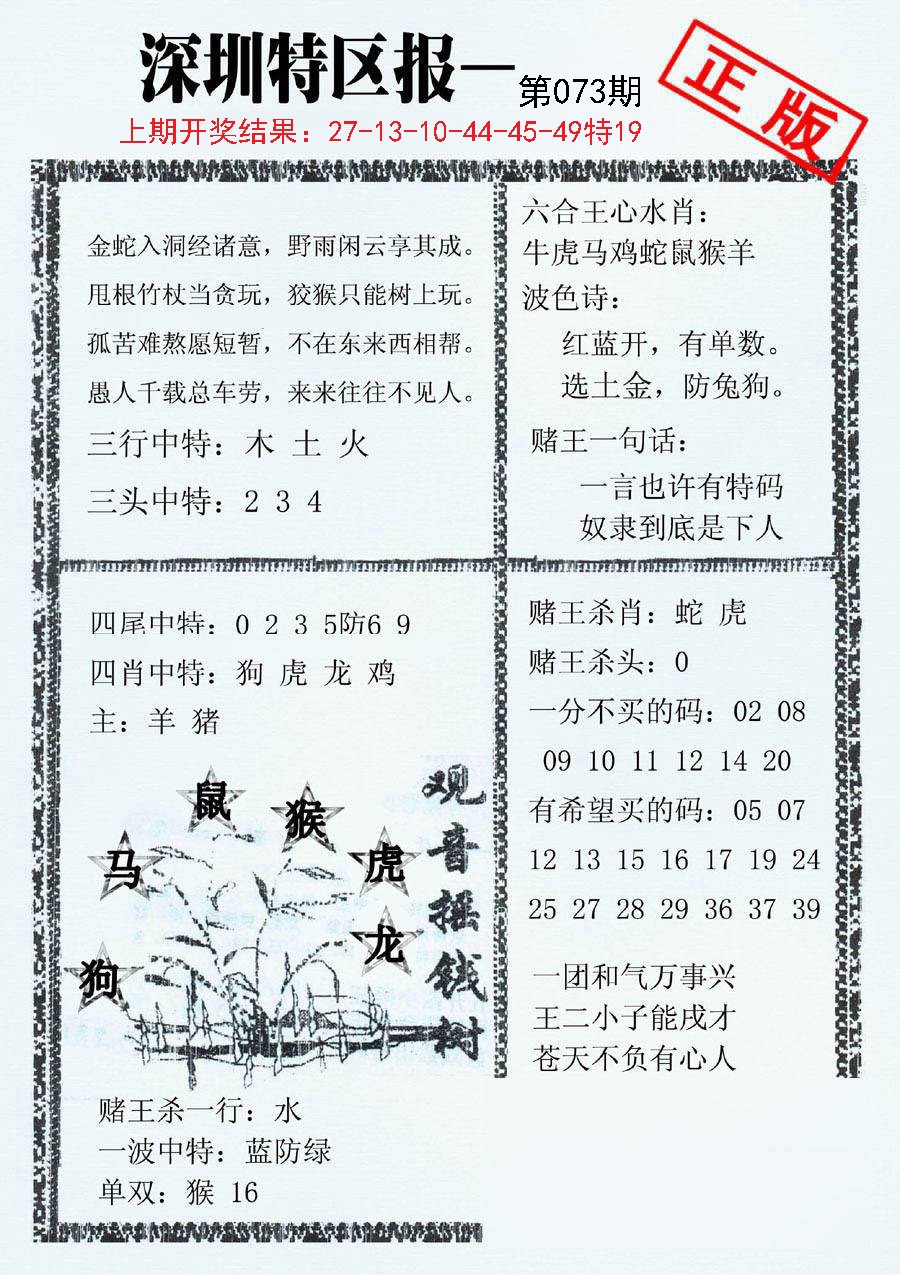 深圳特区报一
第073期
正版
上期开奖结果：27-13-10-44-45-49特19
金蛇入洞经诸意，野雨闲云享其成。
甩根竹杖当贪玩，狡猴只能树上玩。
孤苦难熬愿短暂，不在东来西相帮。
愚人千载总车劳，来来往往不见人。
三行中特：木 土 火
三头中特：2 3 4
六合王心水肖：
牛虎马鸡蛇鼠猴羊
波色诗：
红蓝开，有单数。
选土金，防兔狗。
赌王一句话：
一言也许有特码
奴隶到底是下人
四尾中特：0 2 3 5防6 9
四肖中特：狗 虎 龙 鸡
主：羊 猪
鼠
猴
马
虎
龙
狗
观音摇钱树
赌王杀一行：水
一波中特：蓝防绿
单双：猴 16
赌王杀肖：蛇 虎
赌王杀头：0
一分不买的码：02 08
09 10 11 12 14 20
有希望买的码：05 07
12 13 15 16 17 19 24
25 27 28 29 36 37 39
一团和气万事兴
王二小子能戌才
苍天不负有心人